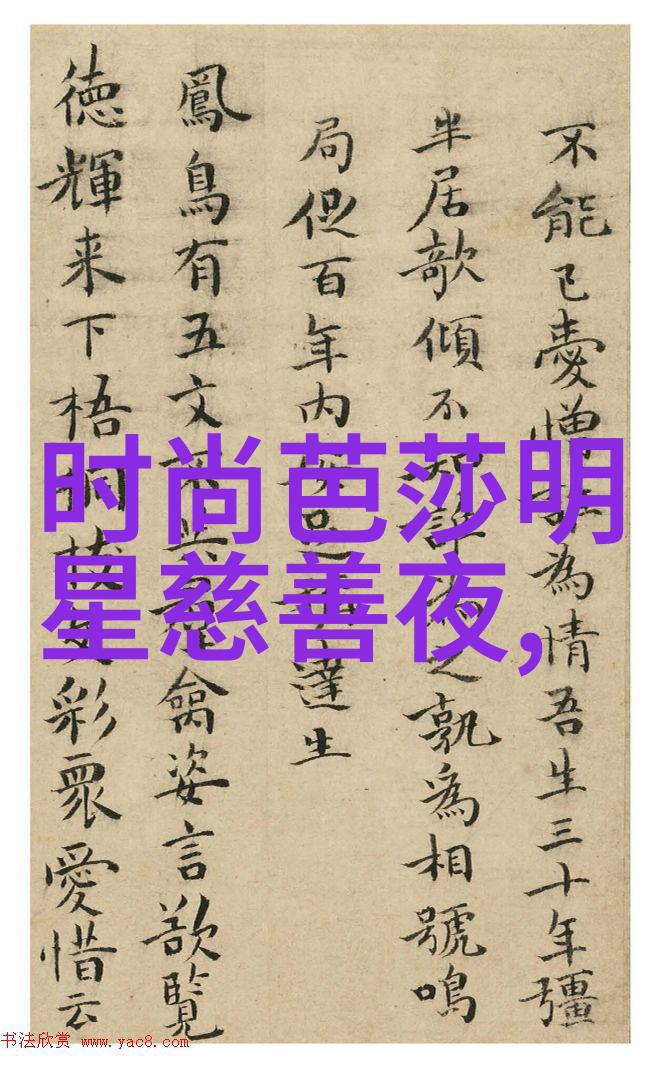 不能已憂憎為情吾生三十年彊
半居欹傾不知許之孰為相號鳴
局促百年内達生
鳳鳥有五文禽姿言欲覧
徳輝来下梧桐彩眾愛惜云
时尚芭莎明
星慈善夜,
书法欣赏 www.yac8.com